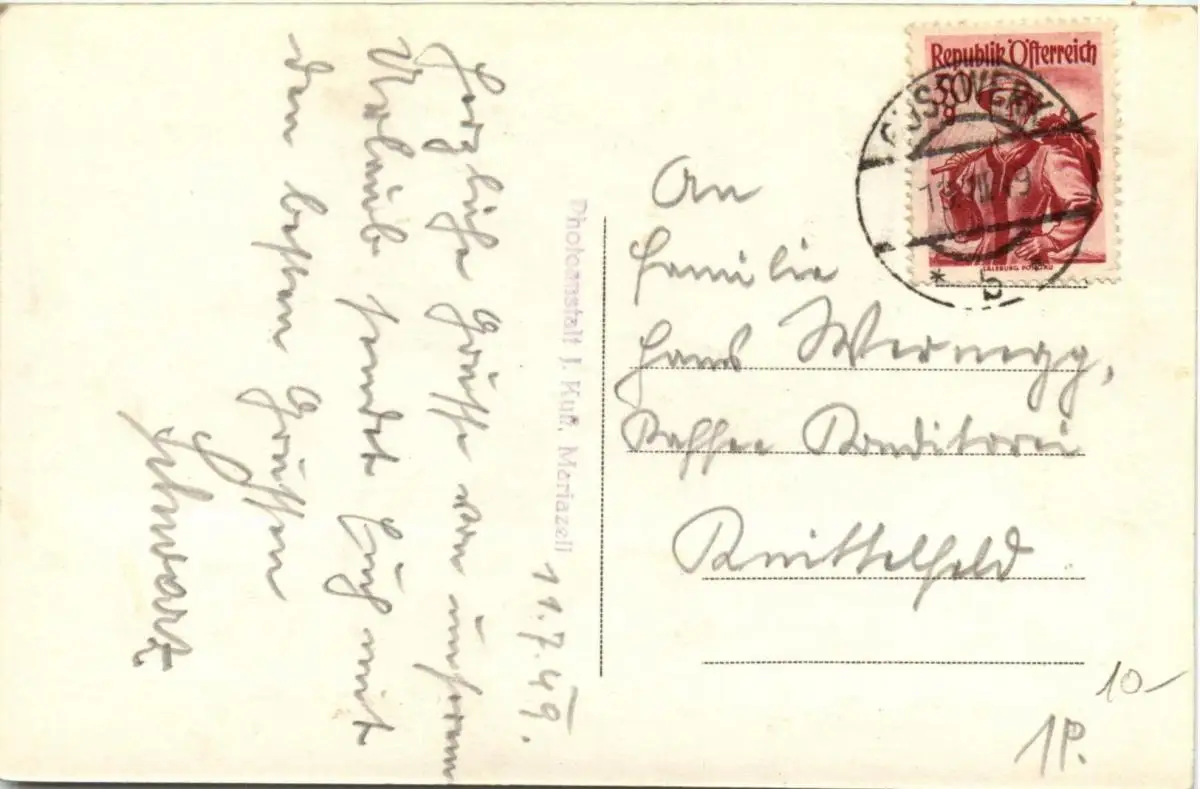 11.7.49.
Herzliche Grüsse von unserem
Urlaub sendet Euch mit
den besten Grüssen
Schwarz
Photoanstalt J. Kuß, Mariazell
Republik Österreich
30
g
SALZBURG PONGAU
GUSSWERK
* b
An
Familie
Hans Wernegg,
Kaffee Konditorei
Knittelfeld
10-
1P.